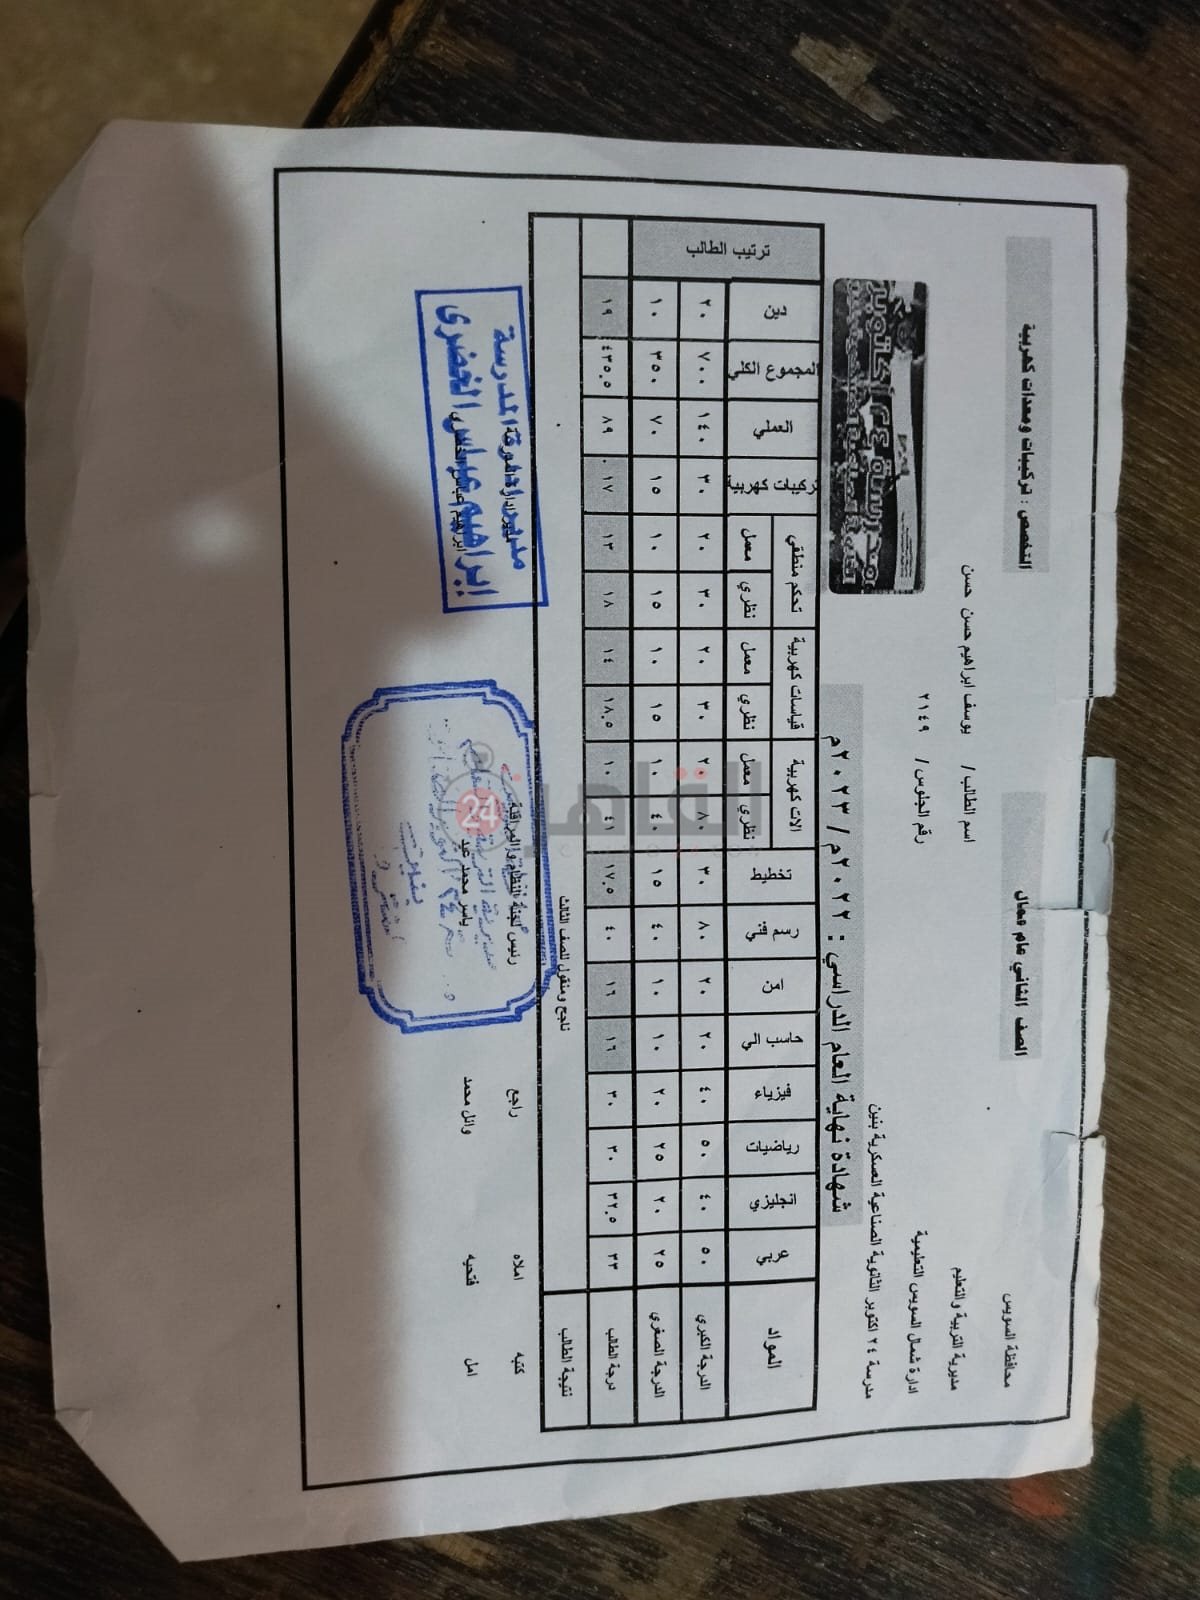 محافظة السويس
مديرية التربية والتعليم
ادارة شمال السويس التعليمية
مدرسة ٢٤ اكتوبر الثانوية الصناعية العسكرية بنين
الصف الثاني عام مجال
التخصص : تركيبات ومعدات كهربية
اسم الطالب / يوسف ابراهيم حسن حسن
رقم الجلوس / ٢١٤٩
شهادة نهاية العام الدراسي : ٢٠٢٢م / ٢٠٢٣م
المواد عربي انجليزي رياضيات فيزياء حاسب الي امن رسم فني تخطيط الات كهربية قياسات كهربية تحكم منطقي تركيبات كهربية العملي المجموع الكلي دين ترتيب الطالب
نظري معمل نظري معمل نظري معمل
الدرجة الكبري ٥٠ ٤٠ ٥٠ ٤٠ ٢٠ ٢٠ ٨٠ ٣٠ ٨٠ ٢٠ ٣٠ ٢٠ ٣٠ ٢٠ ٣٠ ١٤٠ ٧٠٠ ٢٠
الدرجة الصغري ٢٥ ٢٠ ٢٥ ٢٠ ١٠ ١٠ ٤٠ ١٥ ٤٠ ١٠ ١٥ ١٠ ١٥ ١٠ ١٥ ٧٠ ٣٥٠ ١٠
درجة الطالب ٣٣ ٣٢.٥ ٣٠ ٣٠ ١٦ ١٦ ٤٠ ١٧.٥ ٤١ ١٠ ١٨.٥ ١٤ ١٨ ١٣ ١٧ ٨٩ ٤٣٥.٥ ١٩
نتيجة الطالب ناجح ومنقول للصف الثالث
كتبه املاه راجع رئيس لجنة النظام والمراقبة
امل فتحيه وائل محمد ياسر محمد عيد ابراهيم عباس الخضري
مدير ادارة المدرسة
إبراهيم عباس الخضرى
القاهرة 24